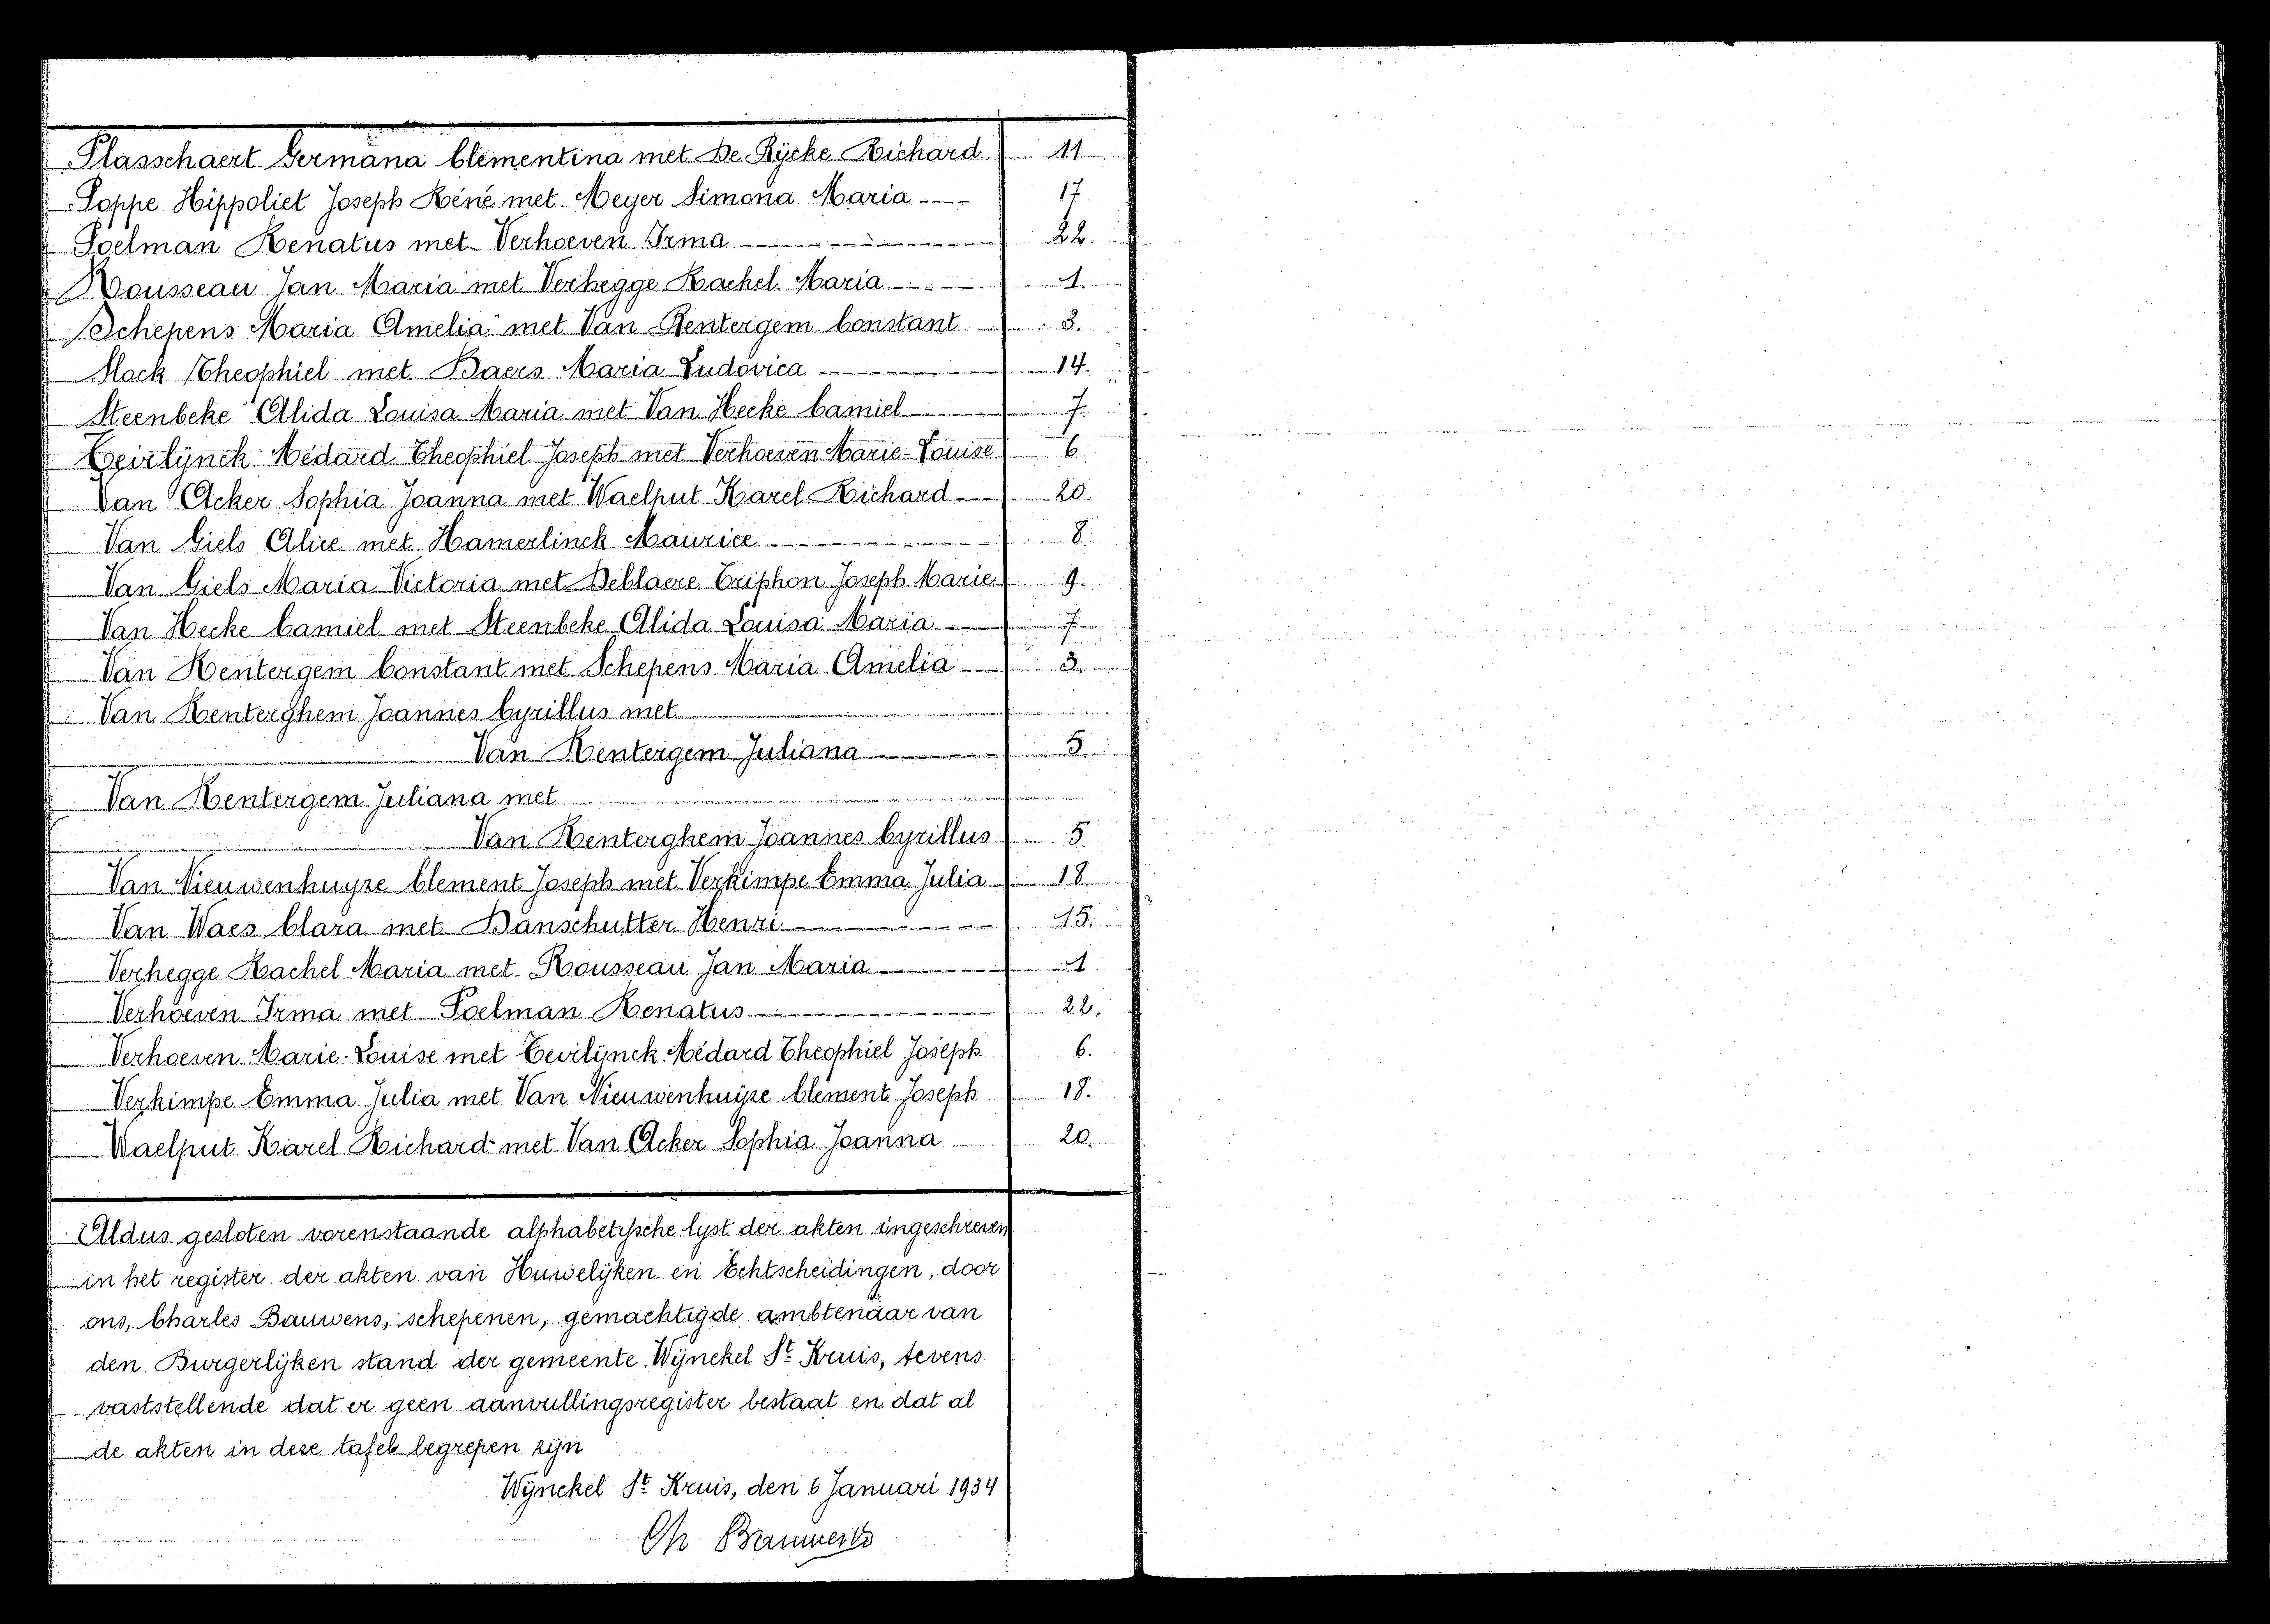 Plasschaert Germana Clementina met De Rÿcke Richard 11
Poppe Hippoliet Joseph Réné met Meyer Simona Maria ---- 17
Poelman Renatus met Verhoeven Irma 22.
Rousseau Jan Maria met Verhegge Rachel Maria 1.
Schepens Maria Amelia met Van Rentergem Constant 3.
Slock Theophiel met Baers Maria Ludovica 14.
Steenbeke Alida Louisa Maria met Van Hecke Camiel 7.
Teirlÿnck Médard Theophiel Joseph met Verhoeven Marie-Louise 6
Van Acker Sophia Joanna met Waelput Karel Richard 20.
Van Giels Alice met Hamerlinck Maurice 8.
Van Giels Maria Victoria met Deblaere Triphon Joseph Marie 9.
Van Hecke Camiel met Steenbeke Alida Louisa Maria 7
Van Rentergem Constant met Schepens Maria Amelia 3.
Van Renterghem Joannes Cyrillus met
Van Rentergem Juliana 5
Van Rentergem Juliana met
Van Renterghem Joannes Cyrillus 5.
Van Nieuwenhuyze Clement Joseph met Verkimpe Emma Julia 18
Van Waes Clara met Danschutter Henri 15.
Verhegge Rachel Maria met Rousseau Jan Maria 1
Verhoeven Irma met Poelman Renatus 22.
Verhoeven Marie-Louise met Teirlÿnck Médard Theophiel Joseph 6.
Verkimpe Emma Julia met Van Nieuwenhuÿze Clément Joseph 18.
Waelput Karel Richard met Van Acker Sophia Joanna 20.
Aldus gesloten vorenstaande alphabetÿsche lyst der akten ingeschreven
in het register der akten van Huwelÿken en Echtscheidingen, door
ons, Charles Bauwens, schepenen, gemachtigde ambtenaar van
den Burgerlÿken stand der gemeente Wÿnckel St Kruis, tevens
vaststellende dat er geen aanvullingsregister bestaat en dat al
de akten in deze tafel begrepen zÿn
Wÿnckel St Kruis, den 6 Januari 1934
Ch Bauwens